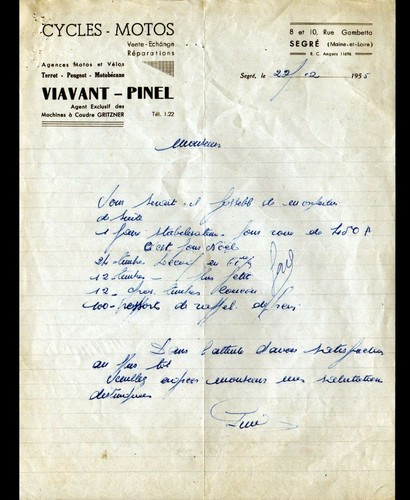 CYCLES - MOTOS
Vente - Echange
Réparations
Agences Motos et Vélos
Terrot - Peugeot - Motobécane
VIAVANT - PINEL
Agent Exclusif des
Machines à Coudre GRITZNER
Tél. 1.22
8 et 10, Rue Gambetta
SEGRÉ (Maine-et-Loire)
R. C. Angers 11696
Segré, le 22/12 1955
Monsieur
Vous serait-il possible de
de suite
1 paire stabilisateur pour roue de
C'est pour Noël
24 timbre
12 timbres plus petit
12 gros timbres
100
Dans l'attente d'avoir satisfaction
au plus tôt
Veuillez agréer monsieur mes salutations
distinguées